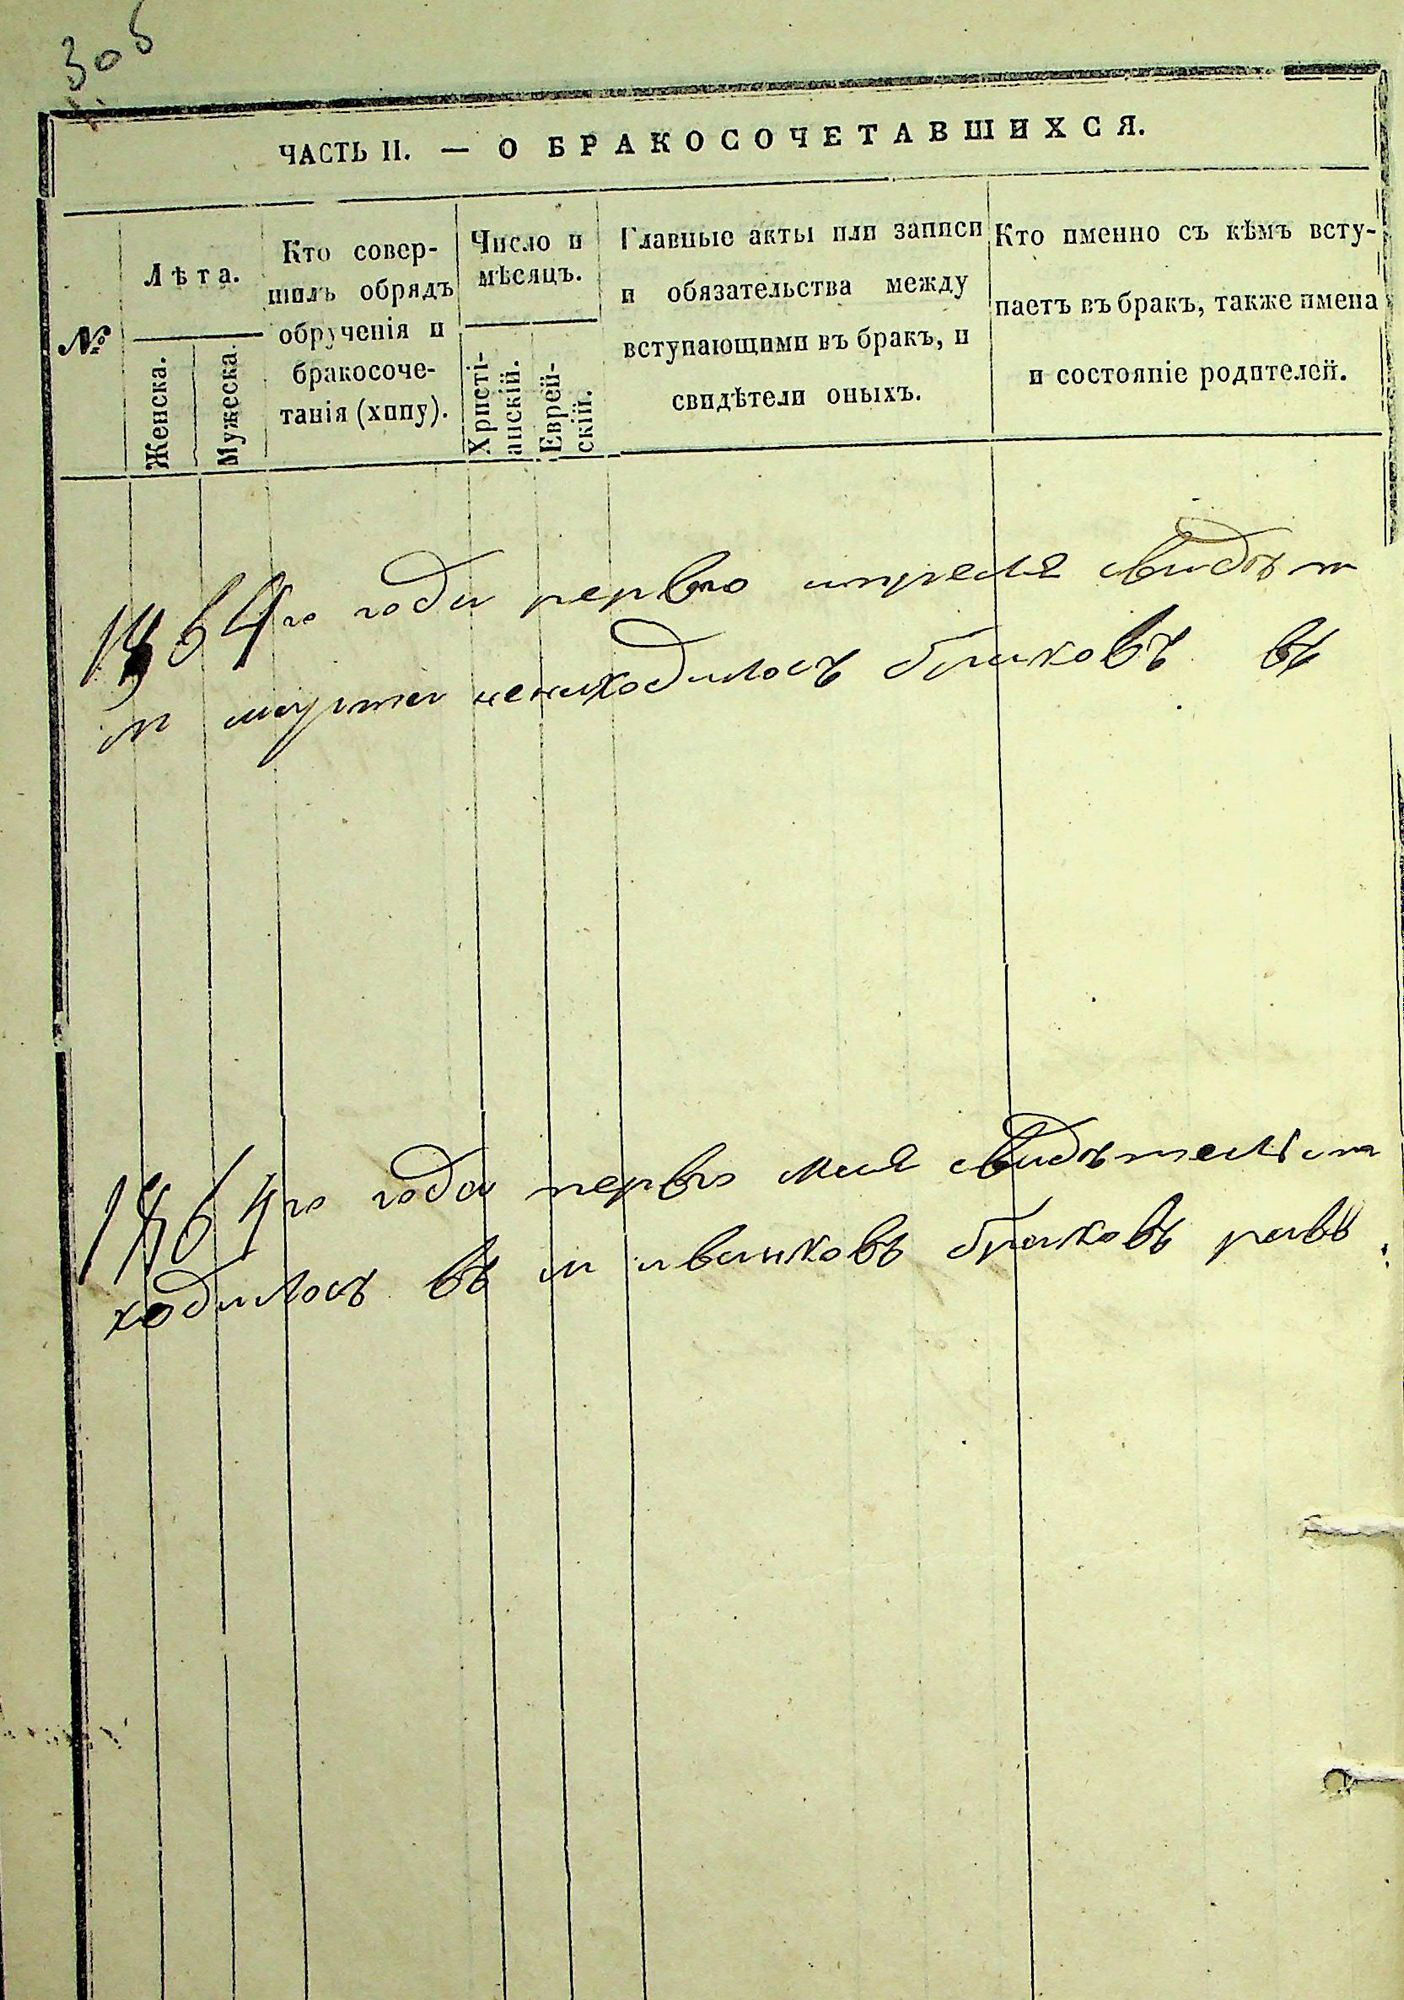 305
ЧАСТЬ II. — О БРАКОСОЧЕТАВШИХСЯ.
№
Лѣта.
Женска.
Мужеска.
Кто совер-
шилъ обрядъ
обрученія и
бракосоче-
танія (хипу).
Число и
мѣсяцъ.
Христі-
анскій.
Еврей-
скій.
Главные акты или записи
и обязательства между
вступающими въ бракъ, и
свидѣтели оныхъ.
Кто именно съ кѣмъ всту-
паетъ въ бракъ, также имена
и состояніе родителей.
1864го года перваго апреля свидѣт
м марта ненаходилось браковъ въ
1864го года перваго мая свидѣтелст
ходилось въ м браковъ